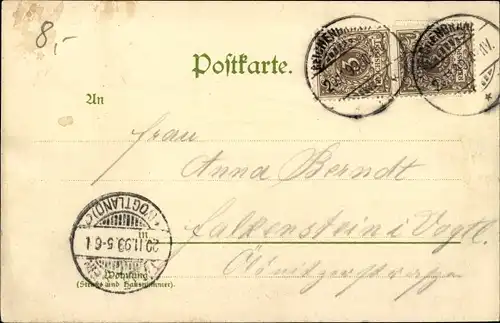 8,-
Postkarte.
An
Frau
Anna Berndt
Falkenstein i Vogtl.
Wohnung
(Straße und Hausnummer).
(VOGTLAND)
20.11.99.5-6
3